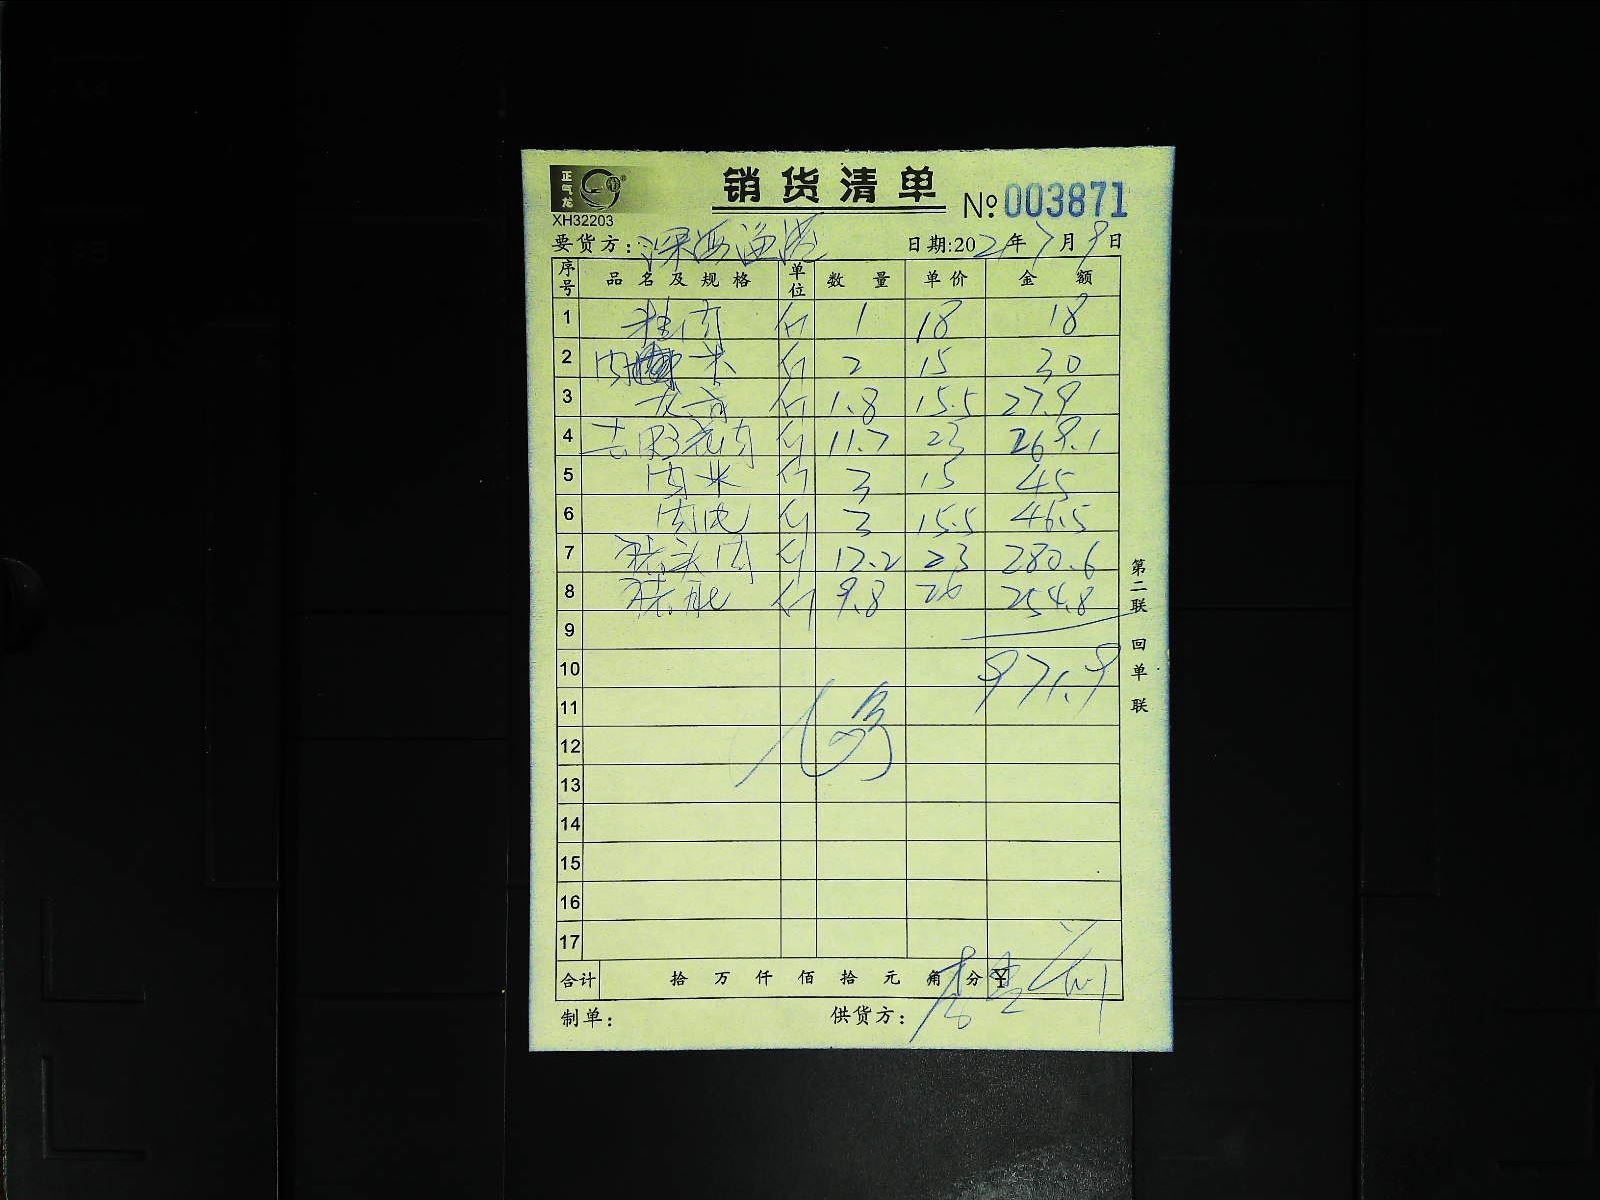 正气龙
XH32203
销货清单
№003871
要货方：深海渔港 日期:202 年7月9日
序号 品名及规格 单位 数量 单价 金额
1 肉 斤 1 18 18
2 肉 米 斤 2 15 30
3 斤 1.8 15.5 27.9
4 去肥 肉 斤 11.7 23 269.1
5 肉米 斤 3 15 45
6 肉 斤 3 15.5 46.5
7 猪头肉 斤 12.2 23 280.6
8 猪肚 斤 9.8 26 254.8
9
10 971.9
11
12
13
14
15
16
17
合计 拾万仟佰拾元角分￥
制单： 供货方：李
第二联 回单联